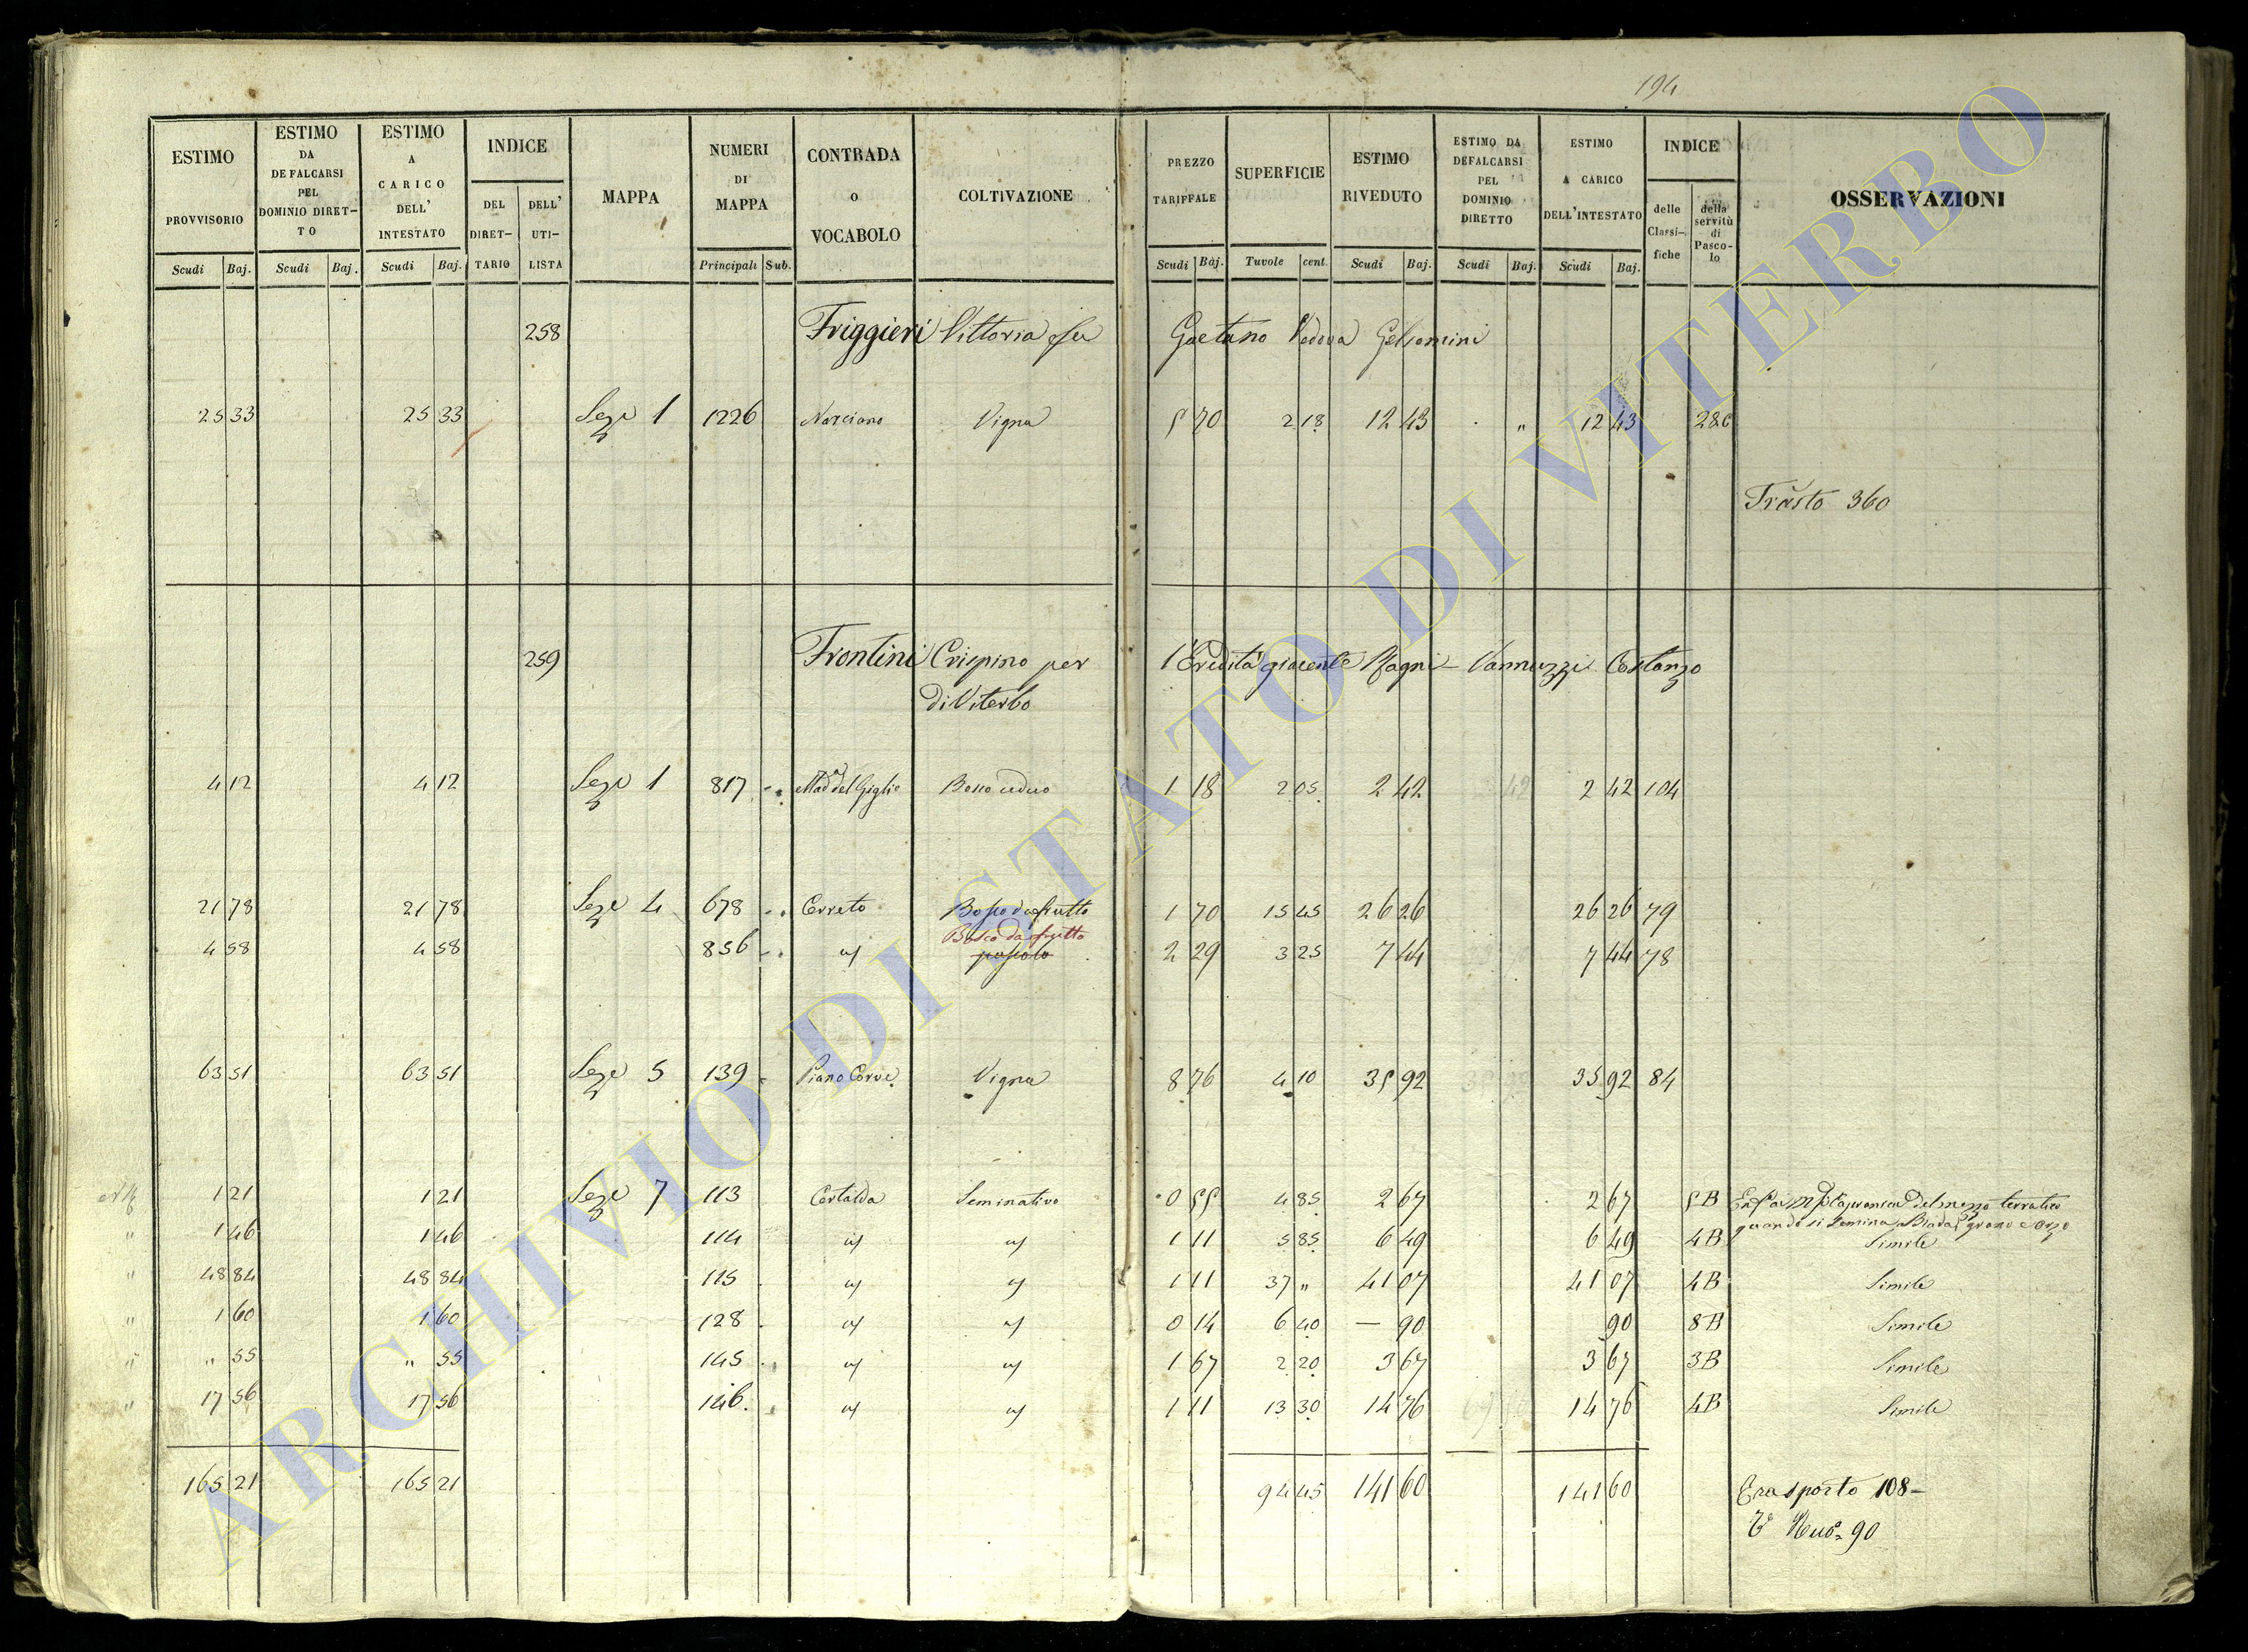 194
ESTIMO PROVVISORIO Scudi Baj.
ESTIMO DA DEFALCARSI PEL DOMINIO DIRET-TO Scudi Baj.
ESTIMO A CARICO DELL' INTESTATO Scudi Baj.
INDICE DEL DIRET-TARIO DELL' UTI-LISTA
MAPPA
NUMERI DI MAPPA Principali Sub.
CONTRADA o VOCABOLO
COLTIVAZIONE
PREZZO TARIFFALE Scudi Baj.
SUPERFICIE Tavole cent.
ESTIMO RIVEDUTO Scudi Baj.
ESTIMO DA DEFALCARSI PEL DOMINIO DIRETTO Scudi Baj.
ESTIMO A CARICO DELL'INTESTATO Scudi Baj.
INDICE delle Classi-fiche della servitù di Pasco-lo
OSSERVAZIONI
258 Friggieri Vittoria fu Gaetano Vedova Gelsomini
25 33 25 33 Seze 1 1226 Narciano Vigna 5 70 2 18 12 43 " 12 43 286
Trasto 360
259 Frontini Crispino per l'Eredità giacente Magni - Vannuzzi Costanzo
di Viterbo
4 12 4 12 Seze 1 817 Mad. del Giglio Bosco ceduo 1 18 2 05 2 42 2 42 104
21 78 21 78 Seze 4 678 Cerreto Bosco da frutto 1 70 15 45 26 26 26 26 79
Bosco da frutto
4 58 4 58 856 pascolo 2 29 3 25 7 44 7 44 78
63 51 63 51 Seze 5 139 Piano Corve Vigna 8 76 4 10 35 92 35 92 84
1 21 1 21 Seze 7 113 Certalda Seminativo 0 55 4 85 2 67 2 67 5B del mezzo terratico
quando si semina Biada, grano e orzo
" 1 46 1 46 114 1 11 5 85 6 49 6 49 4B Simile
" 48 84 48 84 115 1 11 37 " 41 07 41 07 4B Simile
" 1 60 1 60 128 0 14 6 40 — 90 90 8B Simile
" " 55 " 55 145 1 67 2 20 3 67 3 67 3B Simile
" 17 56 17 56 146 1 11 13 30 14 76 14 76 4B Simile
165 21 165 21 94 45 141 60 141 60 Trasporto 108
90
ARCHIVIO DI STATO DI VITERBO